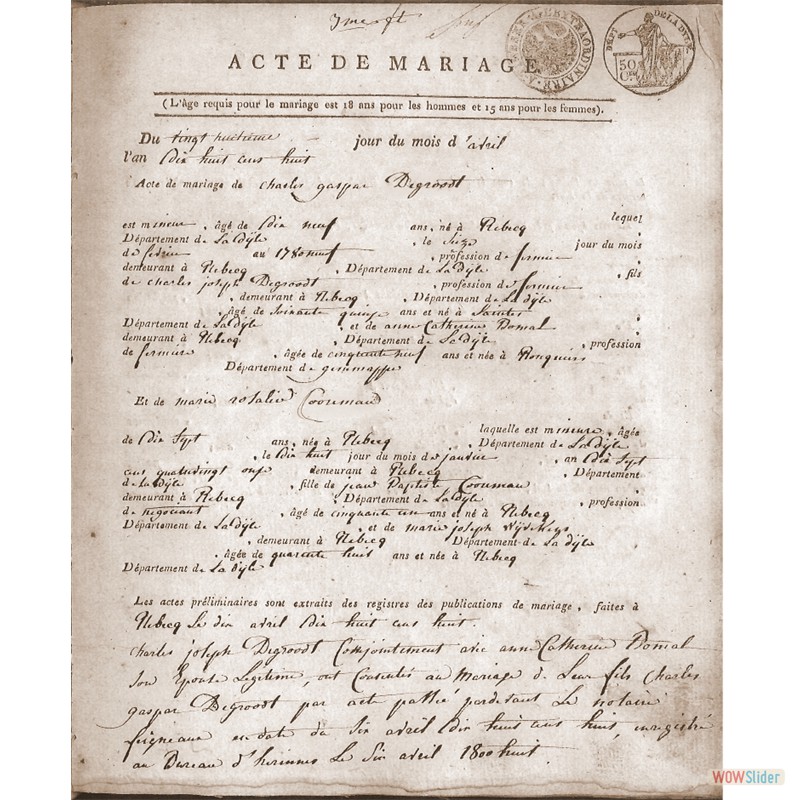 3me ft
TIMBRE EXTRAORDINAIRE
DEPT DE LA DYLE
50 Cen
ACTE DE MARIAGE
(L'âge requis pour le mariage est 18 ans pour les hommes et 15 ans pour les femmes).
Du vingt huitième jour du mois d'avril
l'an dix huit cens huit
Acte de mariage de charles gaspar Degroodt
lequel
est mineur, âgé de dix neuf ans, né à Rebecq
Département de La Dyle, le seize jour du mois
de février au 1789 neuf, profession de fermier
demeurant à Rebecq, Département de La Dyle, fils
de charles joseph Degroodt, profession de fermier
, demeurant à Rebecq, Département de La dyle
, âgé de soixante quinze ans et né à Saintes
Département de La dyle, et de anne Catherine Domal
demeurant à Rebecq, Département de La Dyle, profession
de fermière, âgée de cinquante neuf ans et née à
Département de gemmappe
Et de marie rosalie Cooreman
laquelle est mineure, âgée
de dix sept ans, née à Rebecq, Département de La Dyle
, le dix huit jour du mois de janvier an dix sept
cens quatrevingt onze demeurant à Rebecq, Département
de la Dyle, fille de jean Baptiste Cooreman
demeurant à Rebecq, Département de La dyle, profession
de négociant, âgé de cinquante un ans et né à Rebecq
Département de La dyle, et de marie joseph
, demeurant à Rebecq Département de La dyle
, âgée de quarente huit ans et née à Rebecq
Département de La Dyle
Les actes préliminaires sont extraits des registres des publications de mariage, faites à
Rebecq Le dix avril dix huit cens huit.
charles joseph Degroodt Conjointement avec anne Catherine Domal
son Epouse Legitime, ont Consentis au Mariage de Leur fils Charles
gaspar Degroodt par acte passé pardevant Le notaire
en date du Six avril dix huit cens huit, enregistré
au Bureau d'herinnes Le Six avril 1800 huit.
WOWSlider